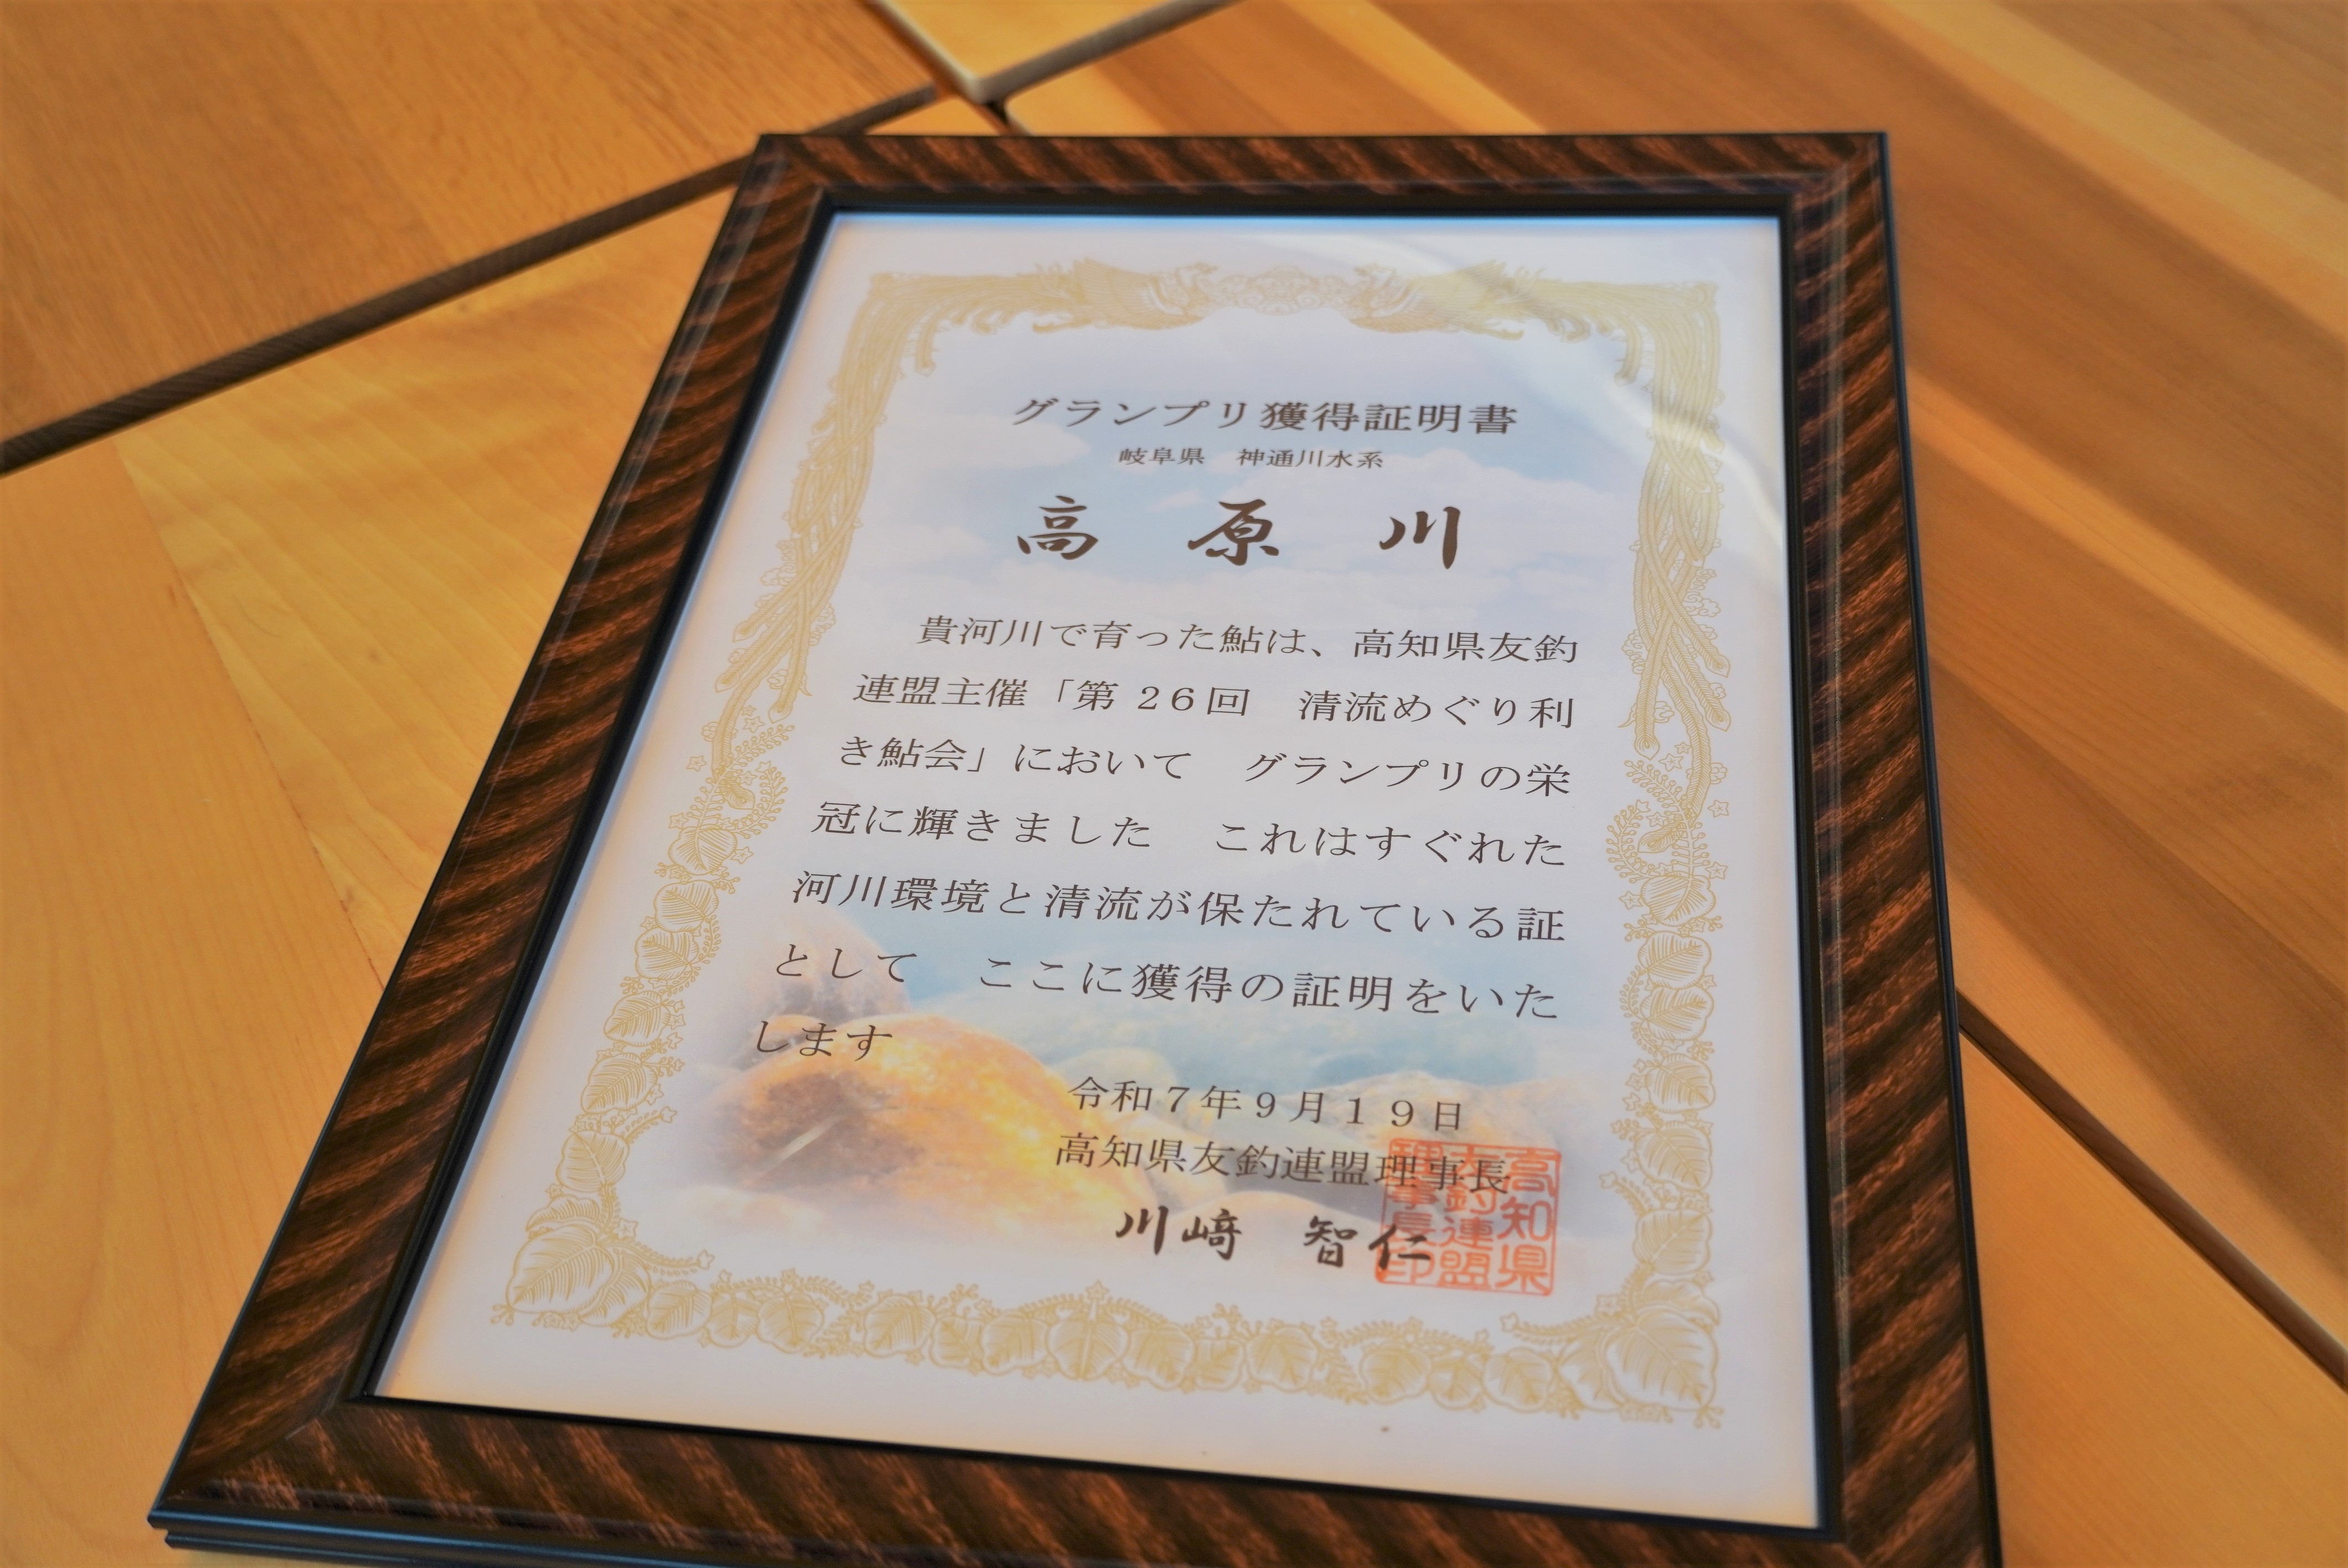 グランプリ獲得証明書
岐阜県　神通川水系
高　原　川
貴河川で育った鮎は、高知県友釣
連盟主催「第２６回　清流めぐり利
き鮎会」において　グランプリの栄
冠に輝きました　これはすぐれた
河川環境と清流が保たれている証
として　ここに獲得の証明をいた
します
令和７年９月１９日
高知県友釣連盟理事長
川﨑　智仁
高知県
友釣連盟
理事長印